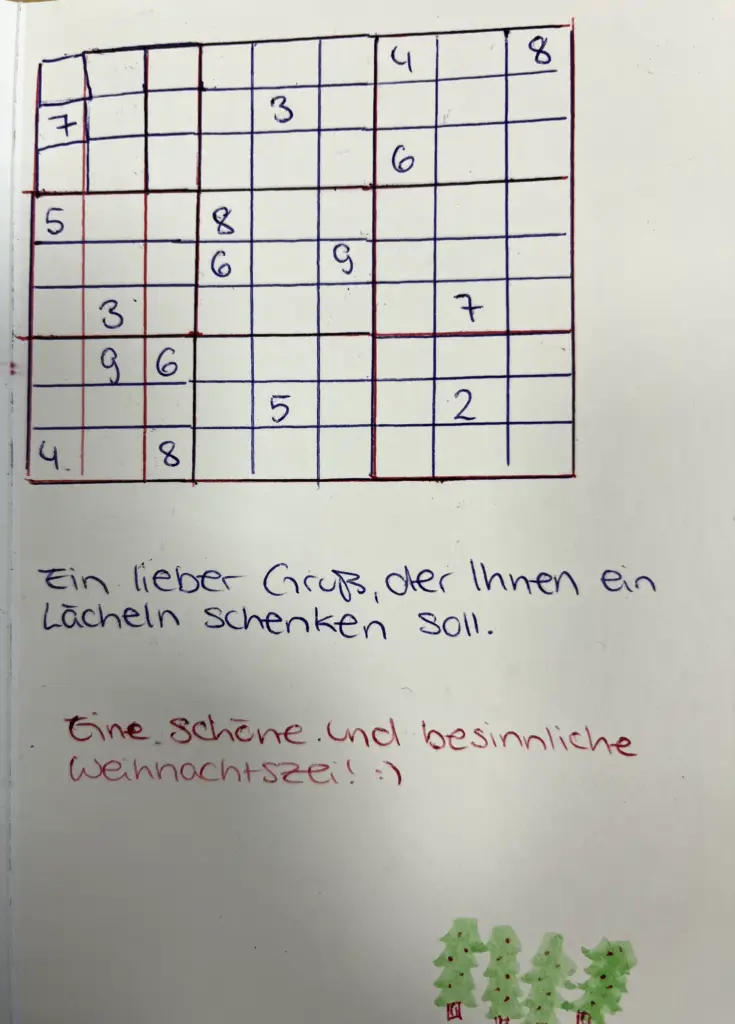 4 8
7 3
6
5 8
6 9
3 7
9 6
5 2
4. 8
Ein lieber Gruß, der Ihnen ein
Lächeln schenken soll.
Eine. schöne. und besinnliche
Weihnachtszei! :)